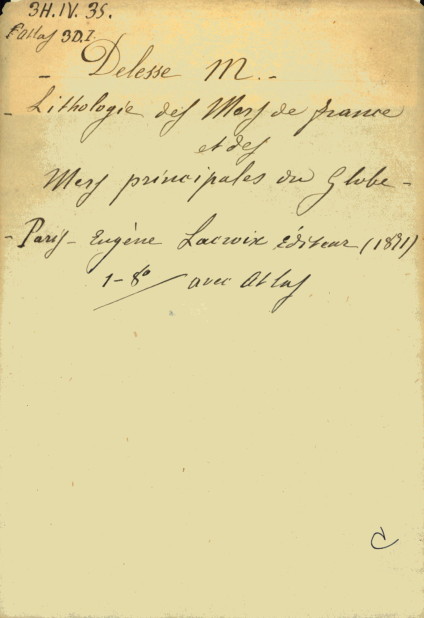 3H.IV.35.
l'atlas 3D.I.
- Delesse M. -
- Lithologie des Mers de france
et des
Mers principales du Globe -
- Paris - Eugène Lacroix éditeur (1871)
1-8° avec Atlas
C